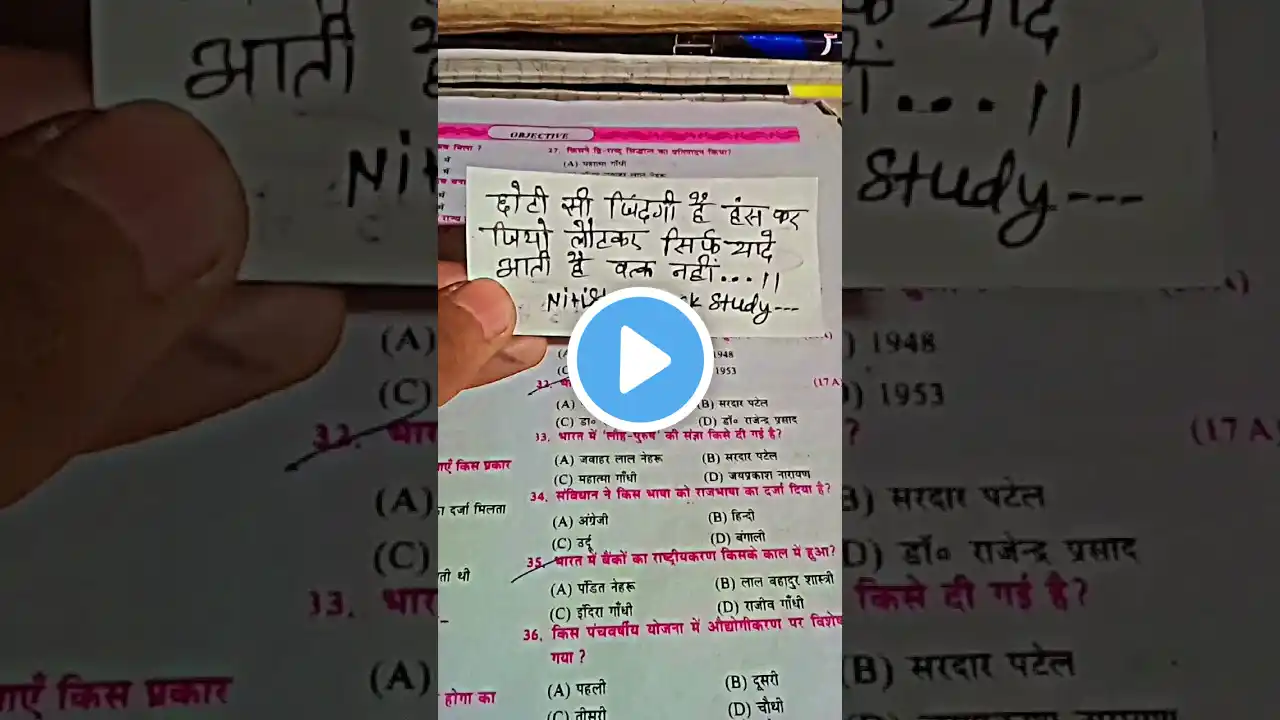 OBJECTIVE
27. किसने द्वि-राष्ट्र सिद्धान्त का प्रतिपादन किया?
(A) महात्मा गाँधी
छोटी सी जिंदगी है हंस कर
जियो लौटकर सिर्फ यादे
आती है वक्त नहीं...।।
Study---
1948
1953
(17 A
32.
(B) सरदार पटेल
(C) डा०
(D) डॉ० राजेन्द्र प्रसाद
33. भारत में 'लौह-पुरुष' की संज्ञा किसे दी गई है?
(A) जवाहर लाल नेहरू
(B) सरदार पटेल
(C) महात्मा गाँधी
(D) जयप्रकाश नारायण
34. संविधान ने किस भाषा को राजभाषा का दर्जा दिया है?
(A) अंग्रेजी
(B) हिन्दी
(C) उर्दू
(D) बंगाली
35. भारत में बैंकों का राष्ट्रीयकरण किसके काल में हुआ?
(A) पंडित नेहरू
(B) लाल बहादुर शास्त्री
(C) इंदिरा गाँधी
(D) राजीव गाँधी
36. किस पंचवर्षीय योजना में औद्योगीकरण पर विशेष
गया ?
(A) पहली
(B) दूसरी
(C) तीसरी
(D) चौथी
किस प्रकार
दर्जा मिलता
थी
होगा का